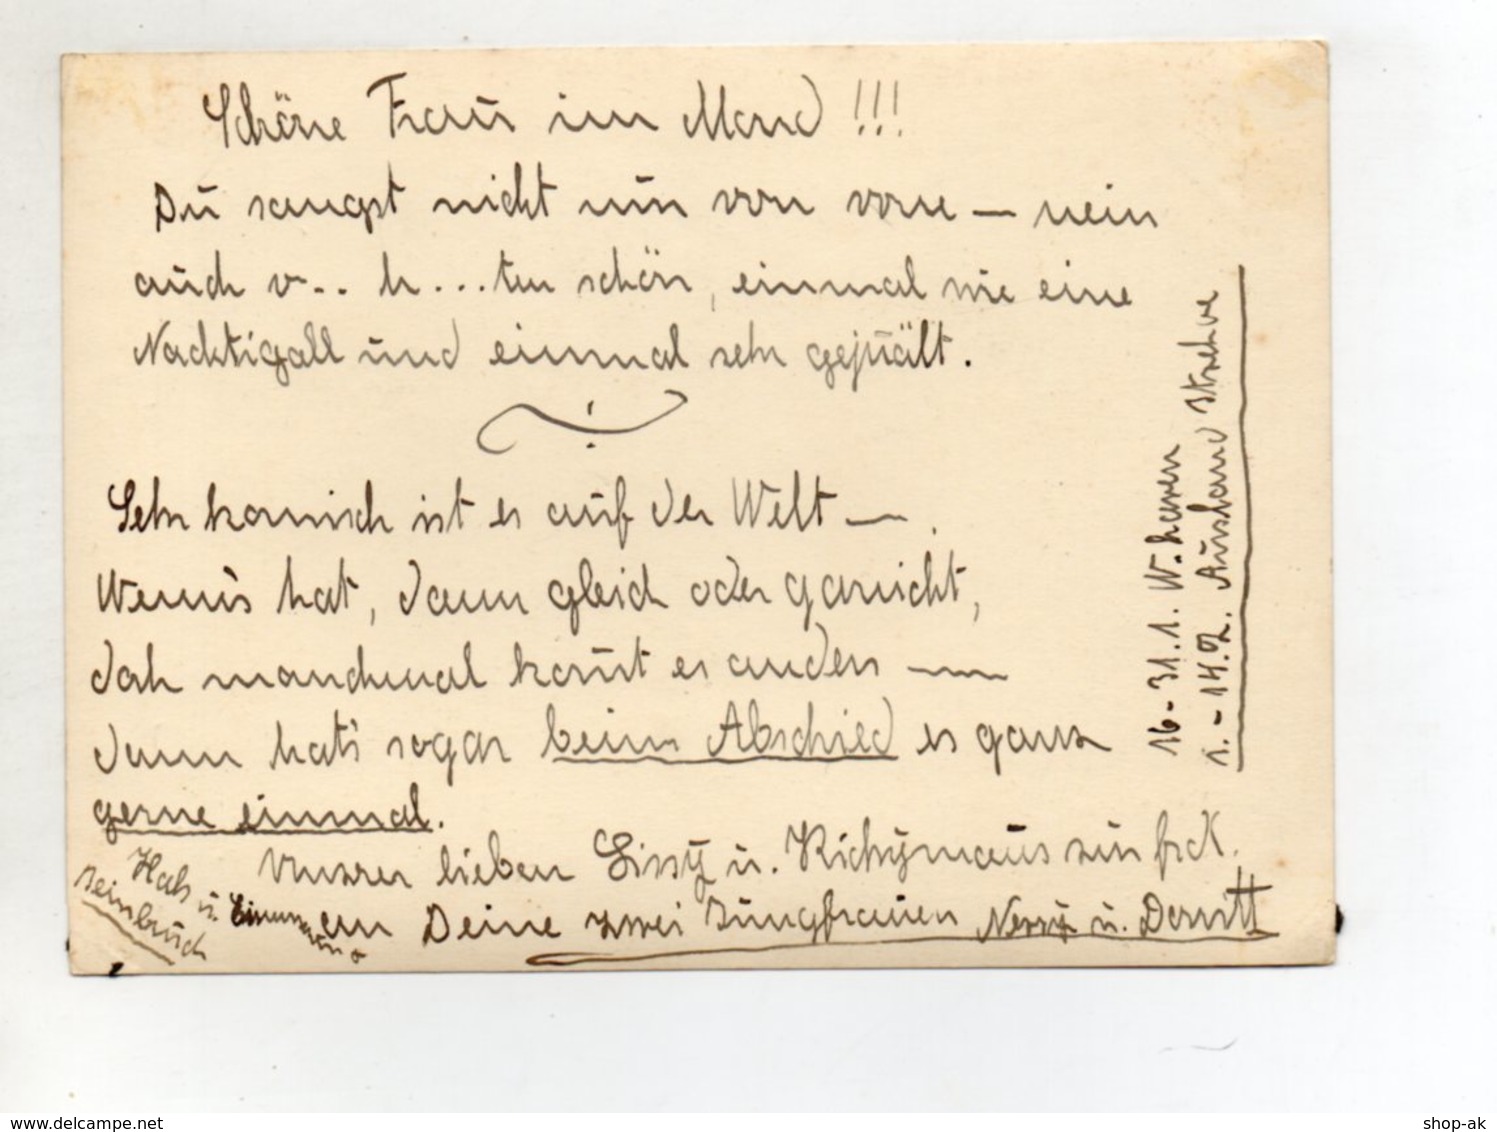 Schöne Frau im Mond !!!
Du saugst nicht nur von vorne — nein
auch v... h...ten schön, einmal wie eine
Nachtigall und einmal sehr gequält.
Sehr komisch ist es auf der Welt —.
Wenn's hat, dann gleich oder garnicht,
doch manchmal kommt es anders —
dann hat's sogar beim Abschied es ganz
gerne einmal.
Unsrer lieben Sissy u. Kickymaus zum
Hals u.
Beinbruch
an Deine zwei Jungfrauen Nerry u. Dorritt
16-31.1. W.haven
1.-14.2. Ausland Strehve
shop-ak